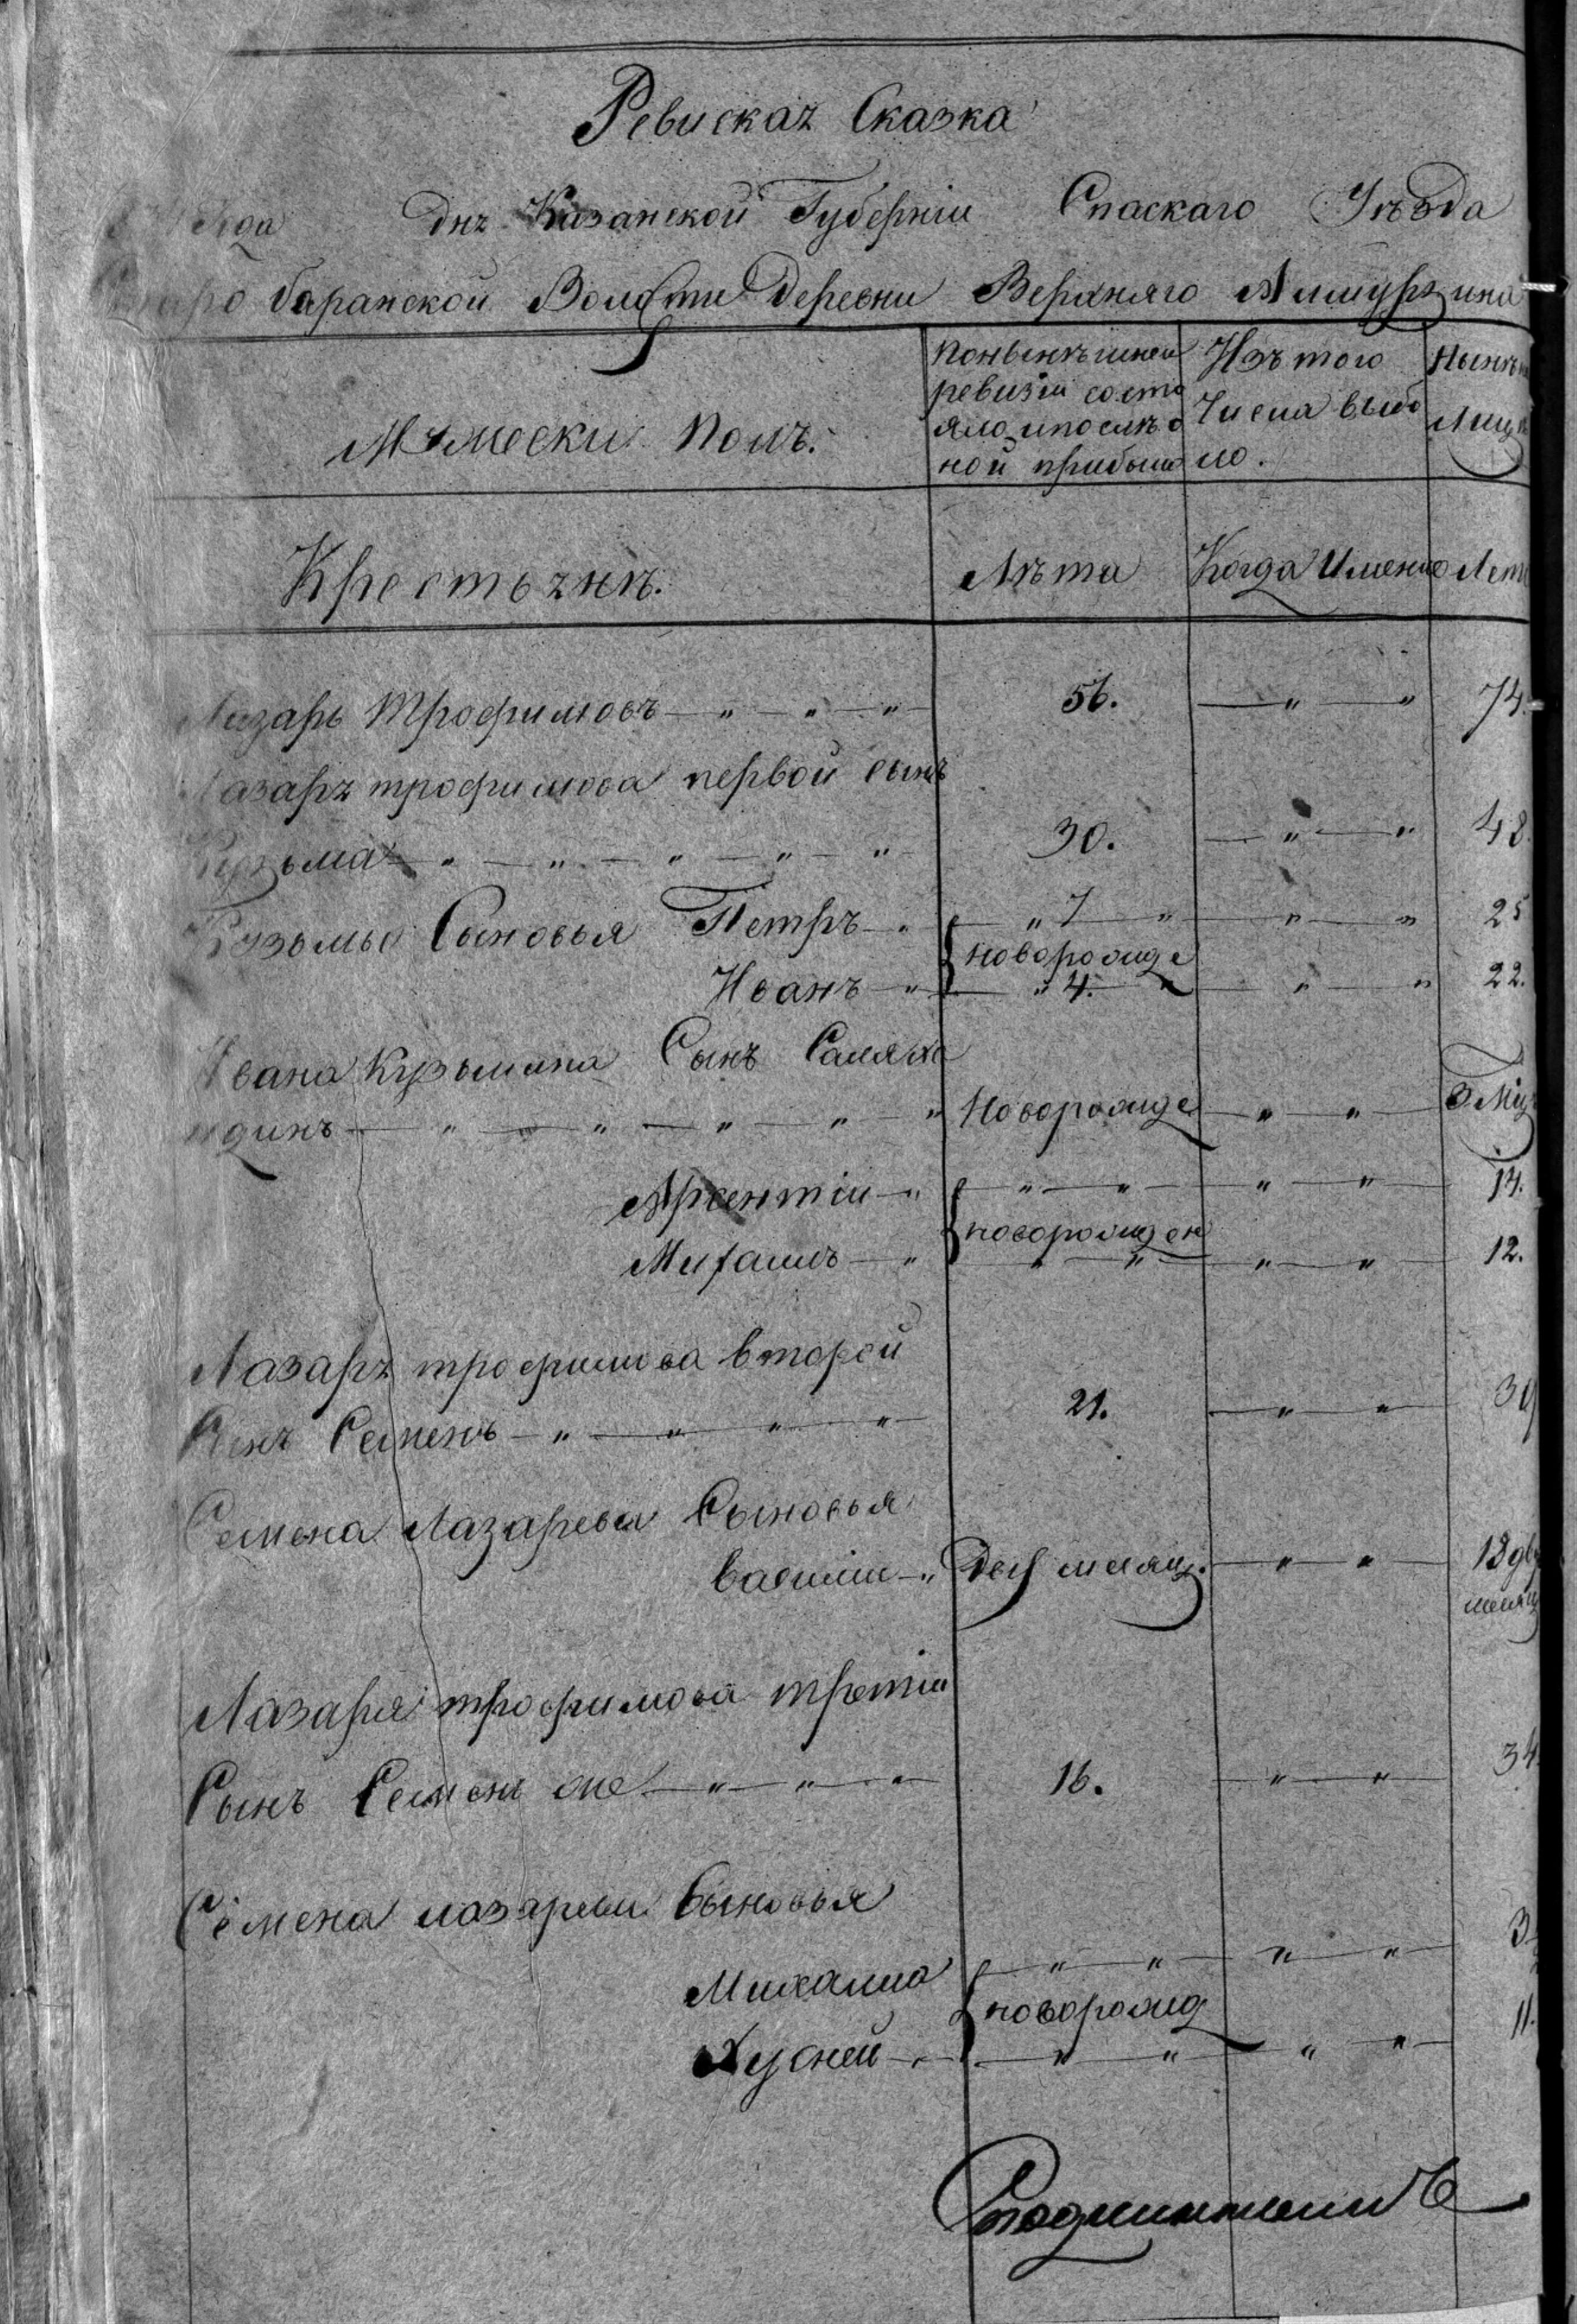 Ревиская Сказка
года дня Казанской Губернiи Спаскаго Уѣзда
Старо баранской Волости Деревни Верхняго Алмурзина
Мужески полъ.
Понынѣшней ревизiи состо яло ипослѣд ной прибыло
Изъ того Числа выбы ло.
Нынѣ
Лицѣ
Крестьянѣ.
Лѣта
Когда Именно
Лета
Лазарь Трофимовъ — " — " — " 56. — " — " 74.
Лазаря трофимова первой сынъ
Кузьма — " — " — " — " — " 30. — " — " 48.
Козьмы Сыновья Петръ — " " 7 " — " — " 25
новорожде
Иванъ — " " 4. " — " — " 22.
Ивана Кузьмина Сынъ Саляхе
идинъ — " — " — " — " — " Новорожде — " — " 3 Мiц
Арсентiи — " — " — " — " — " 14.
новорожден
Михаилъ — " — " — " — " — " 12.
Лазаря трофимова второй
Сынъ Семенъ — " — " — " — " 21. — " — " 39
Семена Лазарева Сыновья
василiи — " Двух месяц. — " — " 18 дву
месяц
Лазаря трофимова третiи
Сынъ Семенъ же — " — " — " 16. — " — " 34
Семена лазарева Сыновья
Михаило — " — " — " — " 3
новорожд
Хусней — " — " — " — " — " 11.